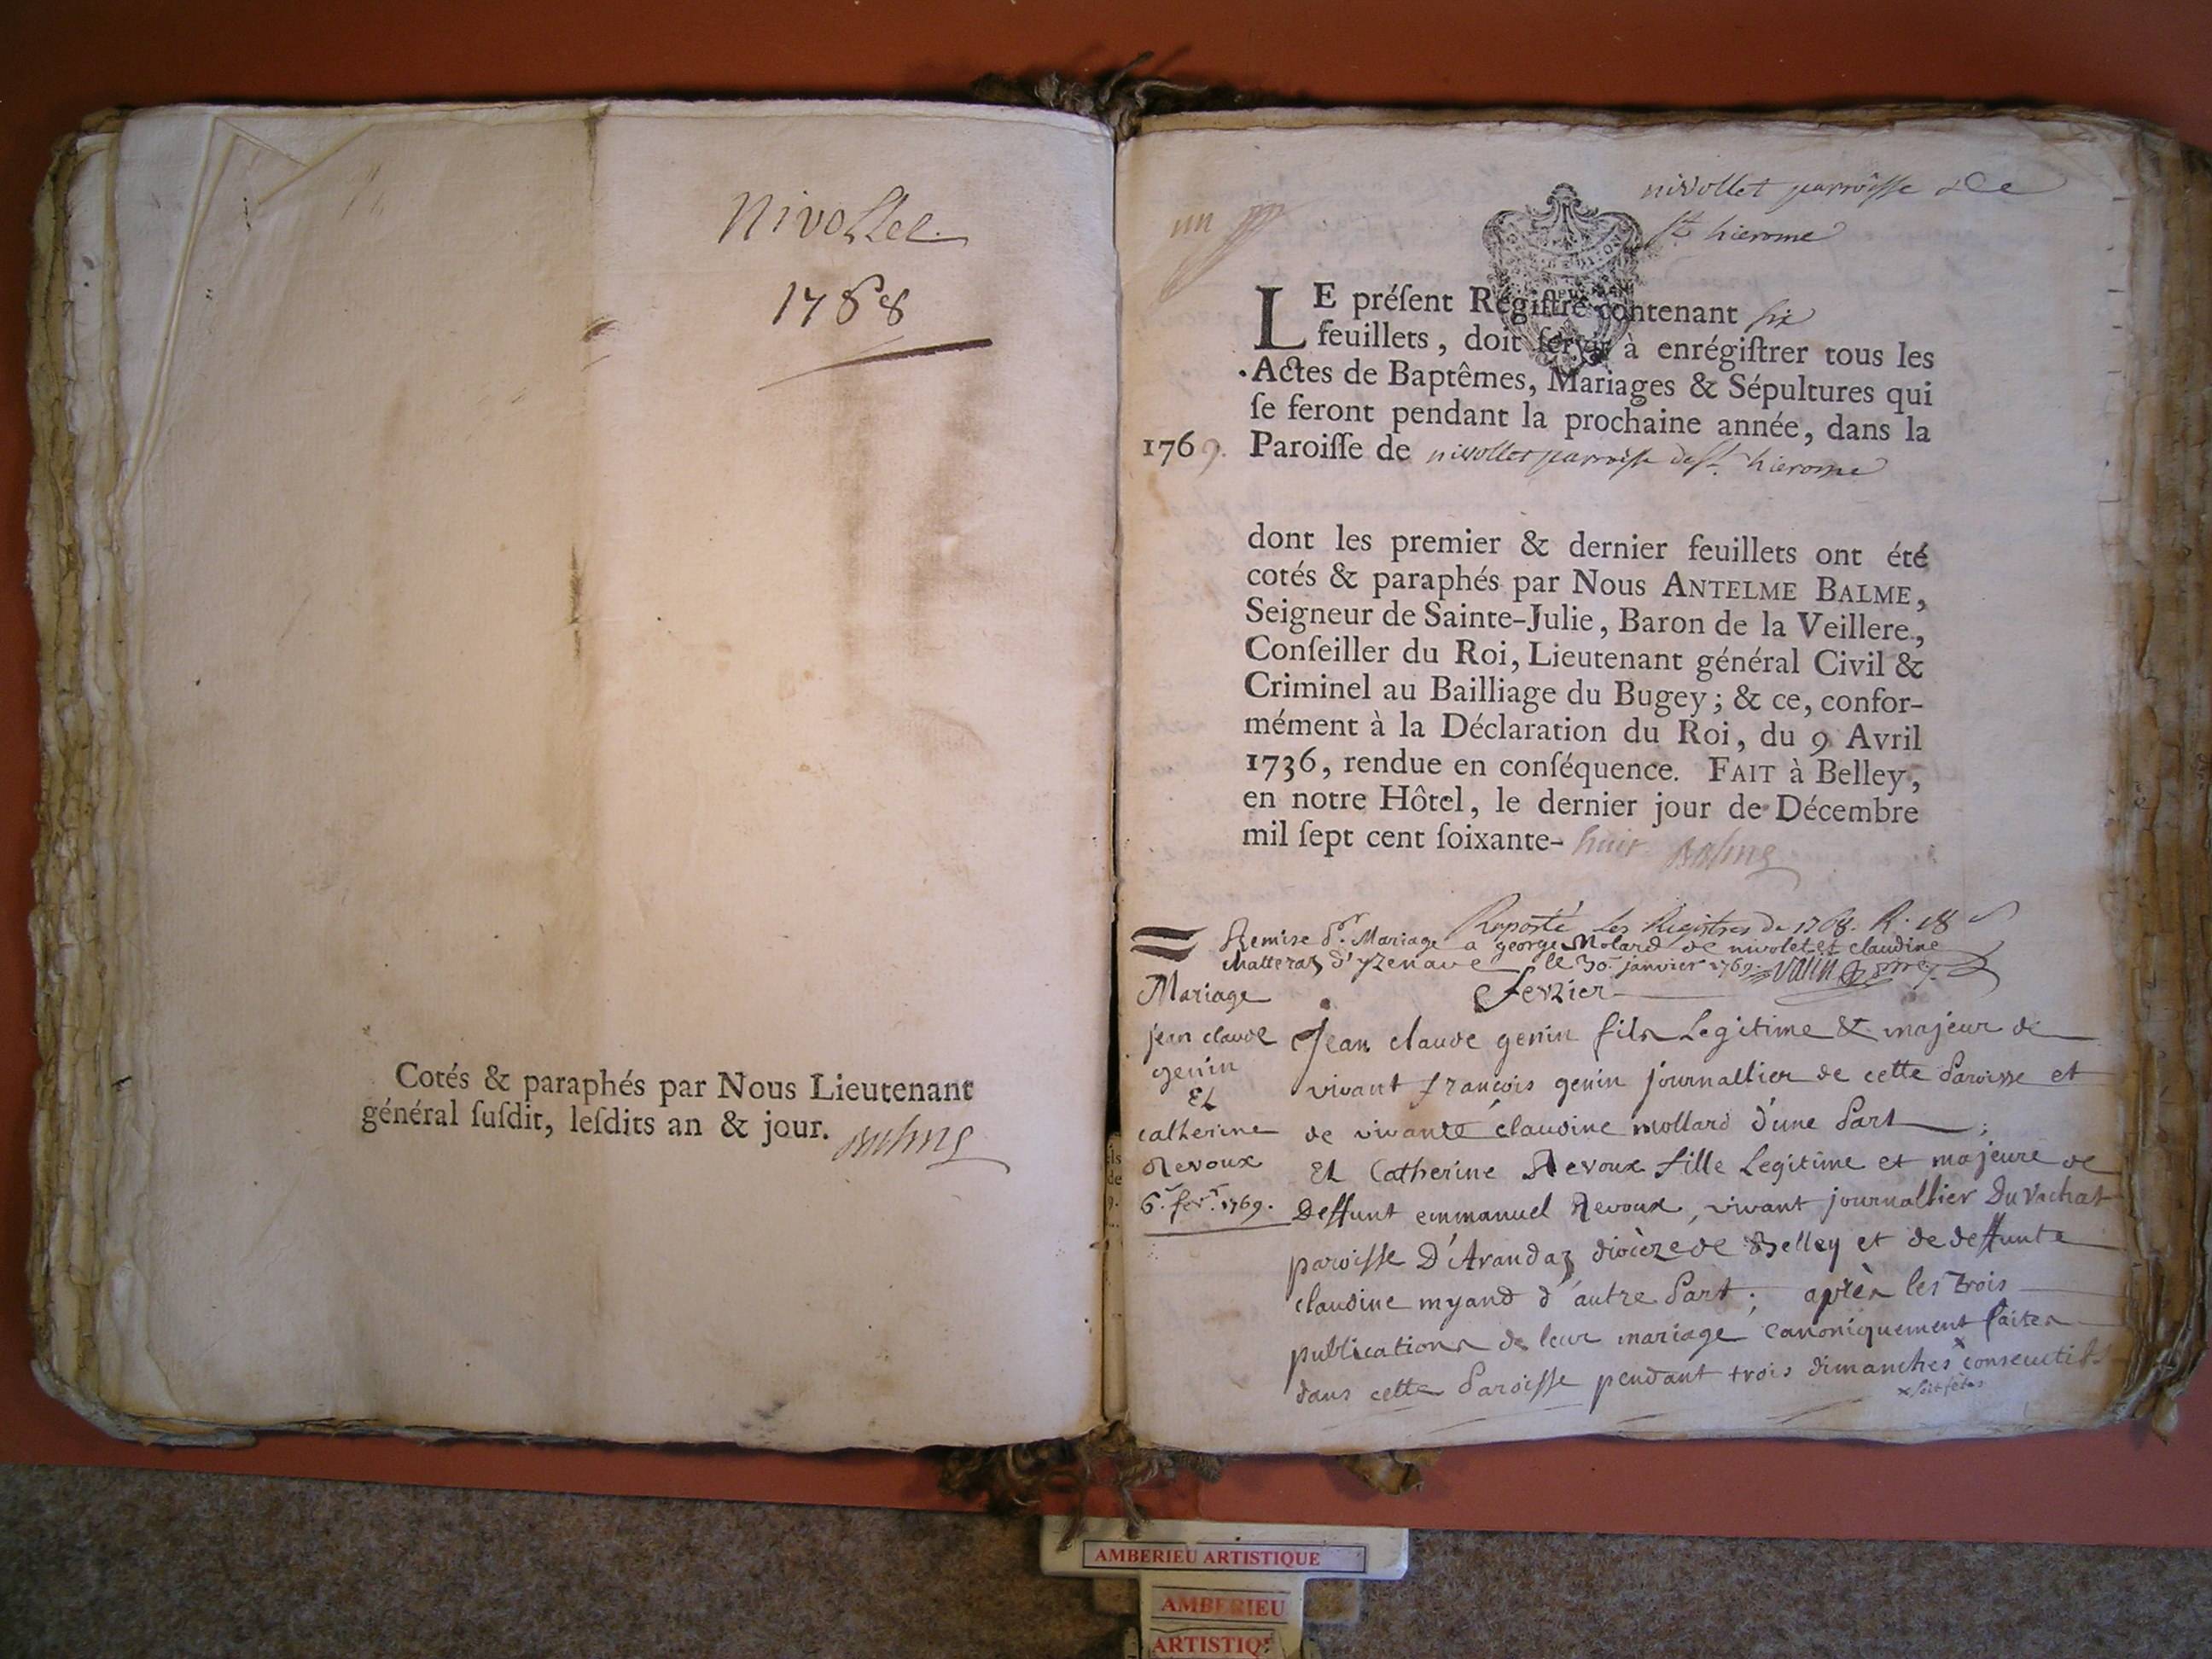 Nivollet
1768
Cotés & paraphés par Nous Lieutenant
général ſuſdit, leſdits an & jour. Balme
nivollet parroisse de
St hierome
un
LE préſent Régiſtre contenant six
feuillets, doit ſervir à enrégiſtrer tous les
Actes de Baptêmes, Mariages & Sépultures qui
ſe feront pendant la prochaine année, dans la
1769. Paroiſſe de nivollet parroisse de St. hierome
dont les premier & dernier feuillets ont été
cotés & paraphés par Nous ANTELME BALME,
Seigneur de Sainte-Julie, Baron de la Veillere,
Conſeiller du Roi, Lieutenant général Civil &
Criminel au Bailliage du Bugey; & ce, confor-
mément à la Déclaration du Roi, du 9 Avril
1736, rendue en conſéquence. FAIT à Belley,
en notre Hôtel, le dernier jour de Décembre
mil ſept cent ſoixante- huit Balme
Raporté les Registres de 1768.
Remise Mariage a george Molard de nivolet et claudine
Matteraz d'yzenave le 30. janvier 1769.
fevrier
Mariage
jean claude
genin
Et
catherine
Revoux
6. fevr. 1769.
Jean claude genin fils Legitime & majeur de
vivant françois genin journallier de cette Paroisse et
de vivante claudine mollard d'une Part;
Et Catherine Revoux fille Legitime et majeure de
Deffunt emmanuel Revoux, vivant journallier Du Vachat
paroisse D'Arandaz diocèze de Belley et de deffunte
claudine myand d'autre Part; après les trois
publications de leur mariage canoniquement faites
dans cette Paroisse pendant trois dimanches x consecutifs
AMBERIEU ARTISTIQUE
AMBERIEU
ARTISTIQ